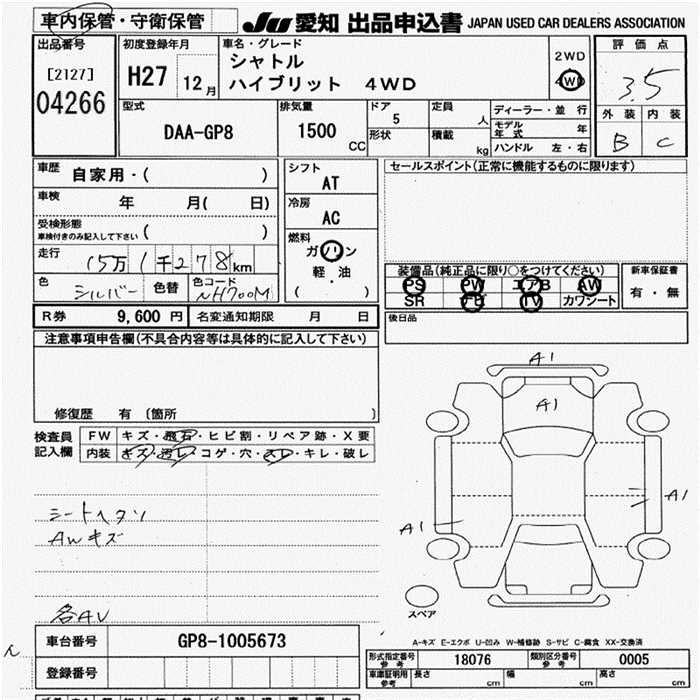 車内保管・守衛保管
JU 愛知 出品申込書 JAPAN USED CAR DEALERS ASSOCIATION
出品番号
[2127]
04266
初度登録年月
H27 12月
車名・グレード
シャトル
ハイブリット 4WD
2WD
4WD
評価点
3.5
外装 内装
B C
型式
DAA-GP8
排気量
1500 CC
ドア
5
形状
定員
人
積載
kg
ディーラー・並行
モデル年式 年
ハンドル 左・右
車歴
自家用・( )
車検
年 月( 日)
受検形態
車検付きのみ記入して下さい ( )
走行
15万1千278km
色
シルバー
色替
色コード
NH700M
シフト
AT
冷房
AC
燃料
ガソリン
軽・油
( )
セールスポイント(正常に機能するものに限ります)
装備品(純正品に限り○をつけてください)
PS PW エアB AW
SR ナビ TV カワシート
新車保証書
有・無
R券 9,600 円 名変通知期限 月 日
後日品
注意事項申告欄(不具合内容等は具体的に記入して下さい)
修復歴 有 〔箇所 〕
検査員記入欄
FW キズ・飛石・ヒビ割・リペア跡・X要
内装 キズ・汚レ・コゲ・穴・スレ・キレ・破レ
シートヘタリ
AWキズ
各AU
A1
A1
A1
A1
スペア
A-キズ E-エクボ U-凹み W-補修跡 S-サビ C-腐食 XX-交換済
車台番号 GP8-1005673
登録番号
形式指定番号 参考 18076 類別区分番号 参考 0005
車庫証明用 参考 長さ cm 幅 cm 高さ cm